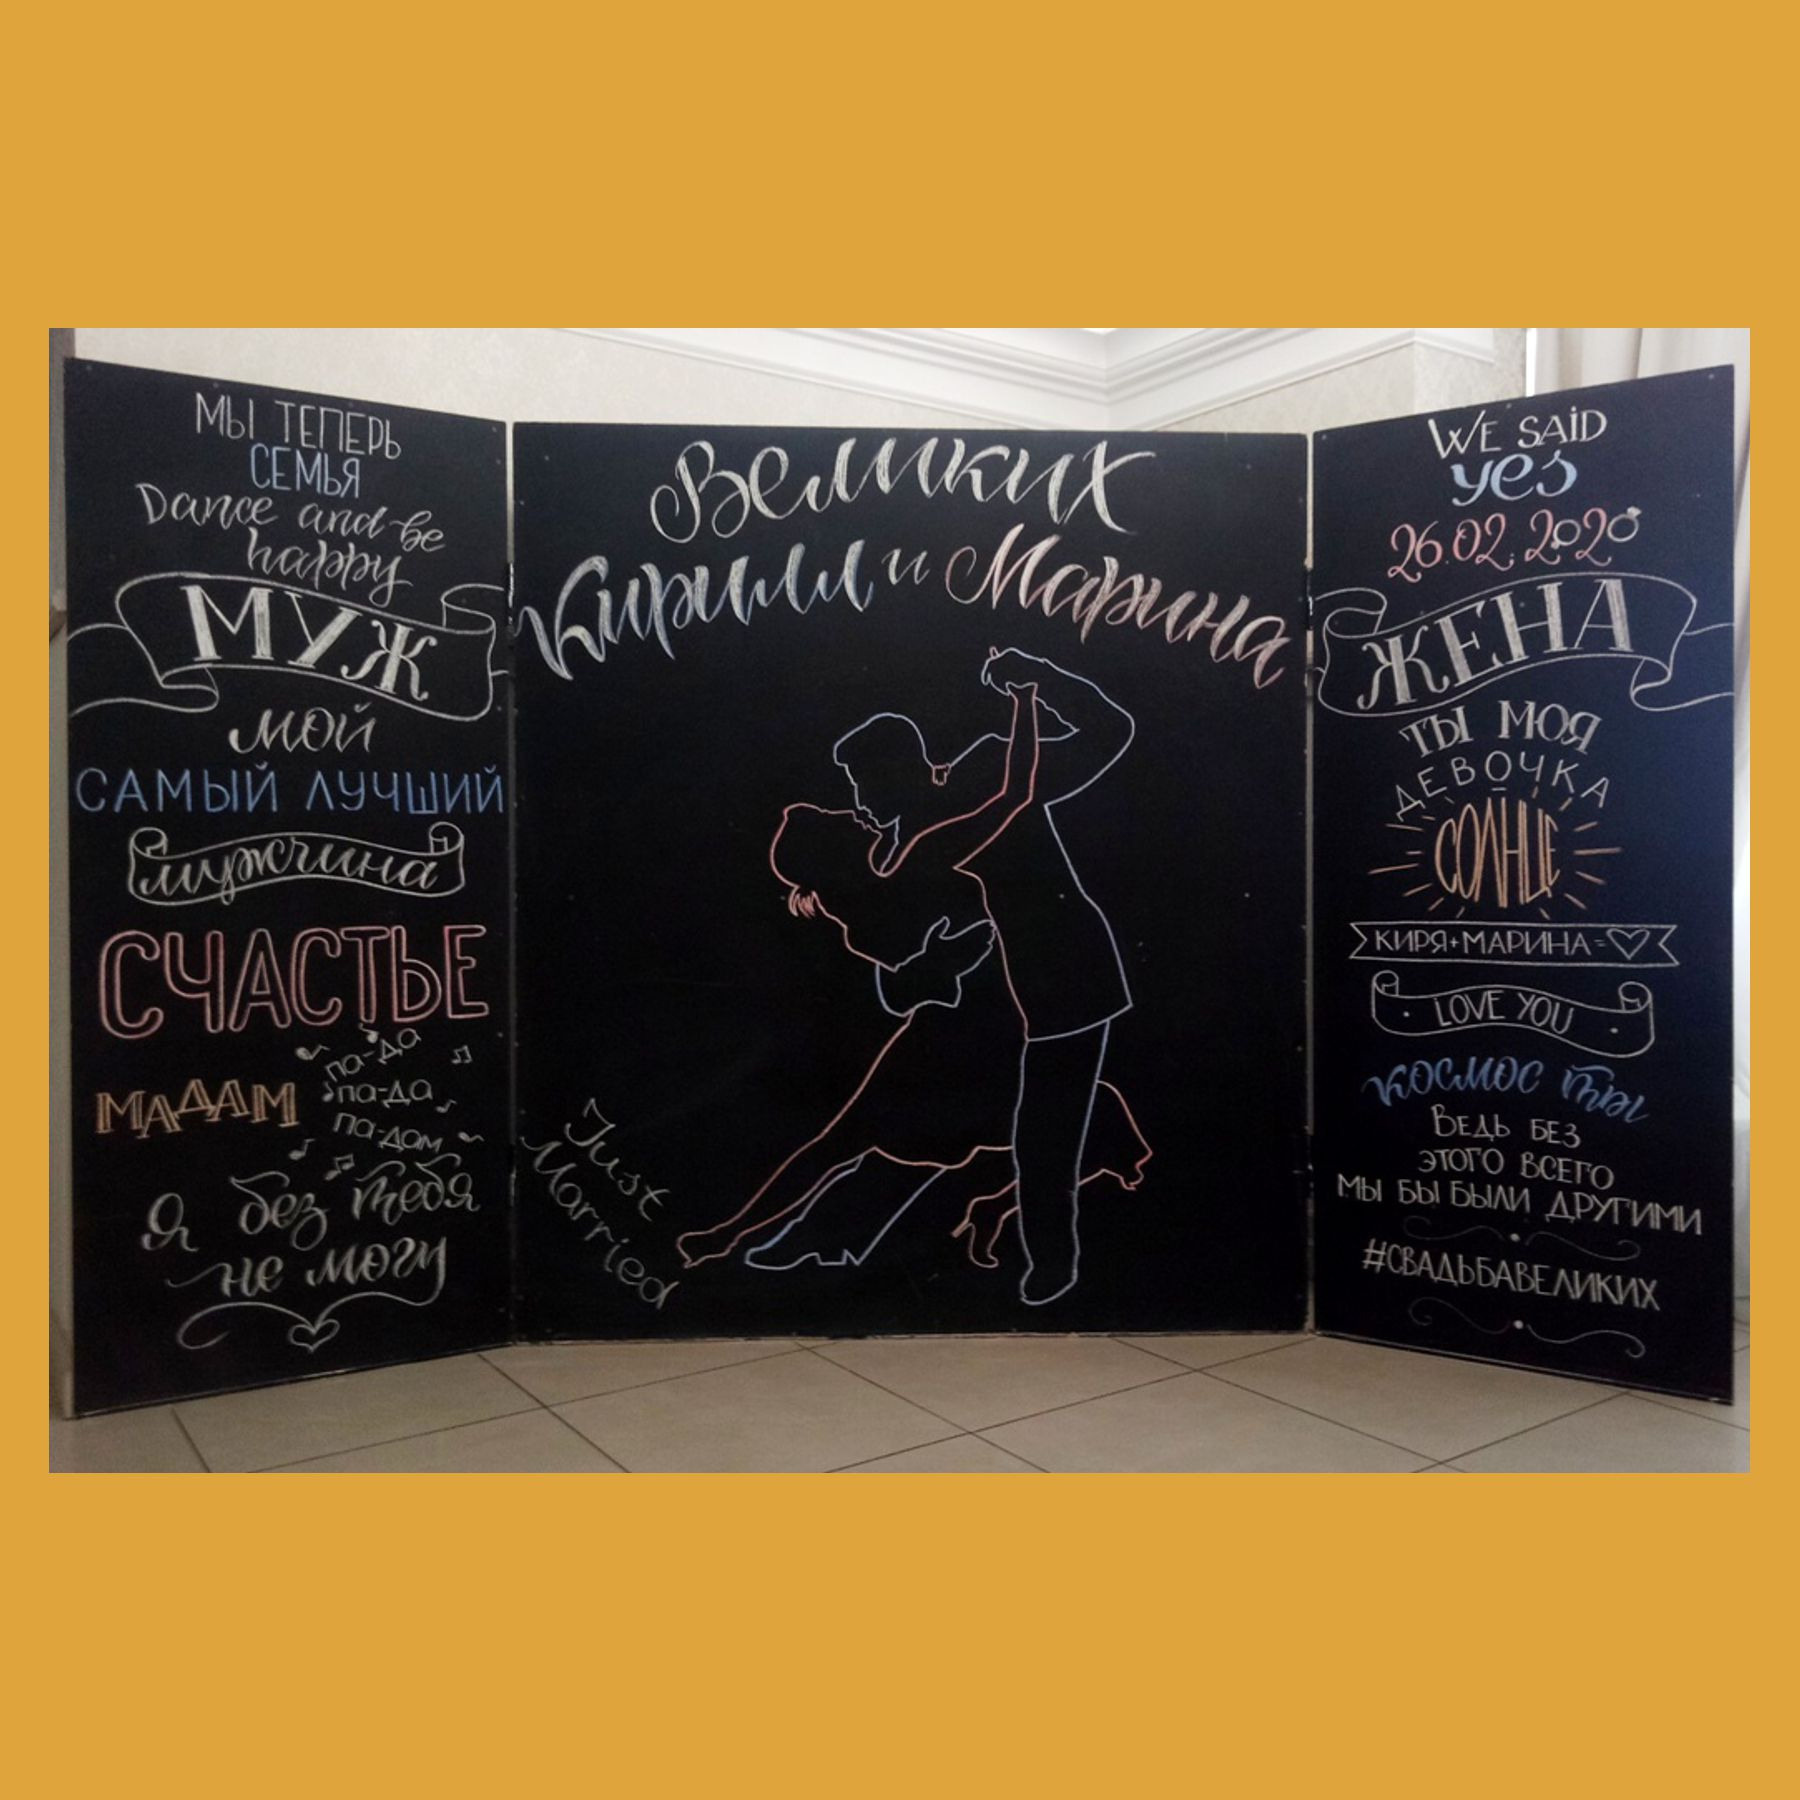 МЫ ТЕПЕРЬ
СЕМЬЯ
Dance and be
happy
МУЖ
мой
САМЫЙ ЛУЧШИЙ
мужчина
СЧАСТЬЕ
МАДАМ
па-да
па-да
па-дам
Я без тебя
не могу
Великих
Кирилл и Марина
Just
Married
WE SAID
yes
26.02.2020
ЖЕНА
ТЫ МОЯ
ДЕВОЧКА
СОЛНЦЕ
КИРЯ+МАРИНА=♡
LOVE YOU
космос ты
ВЕДЬ БЕЗ
ЭТОГО ВСЕГО
МЫ БЫ БЫЛИ ДРУГИМИ
#СВАДЬБАВЕЛИКИХ